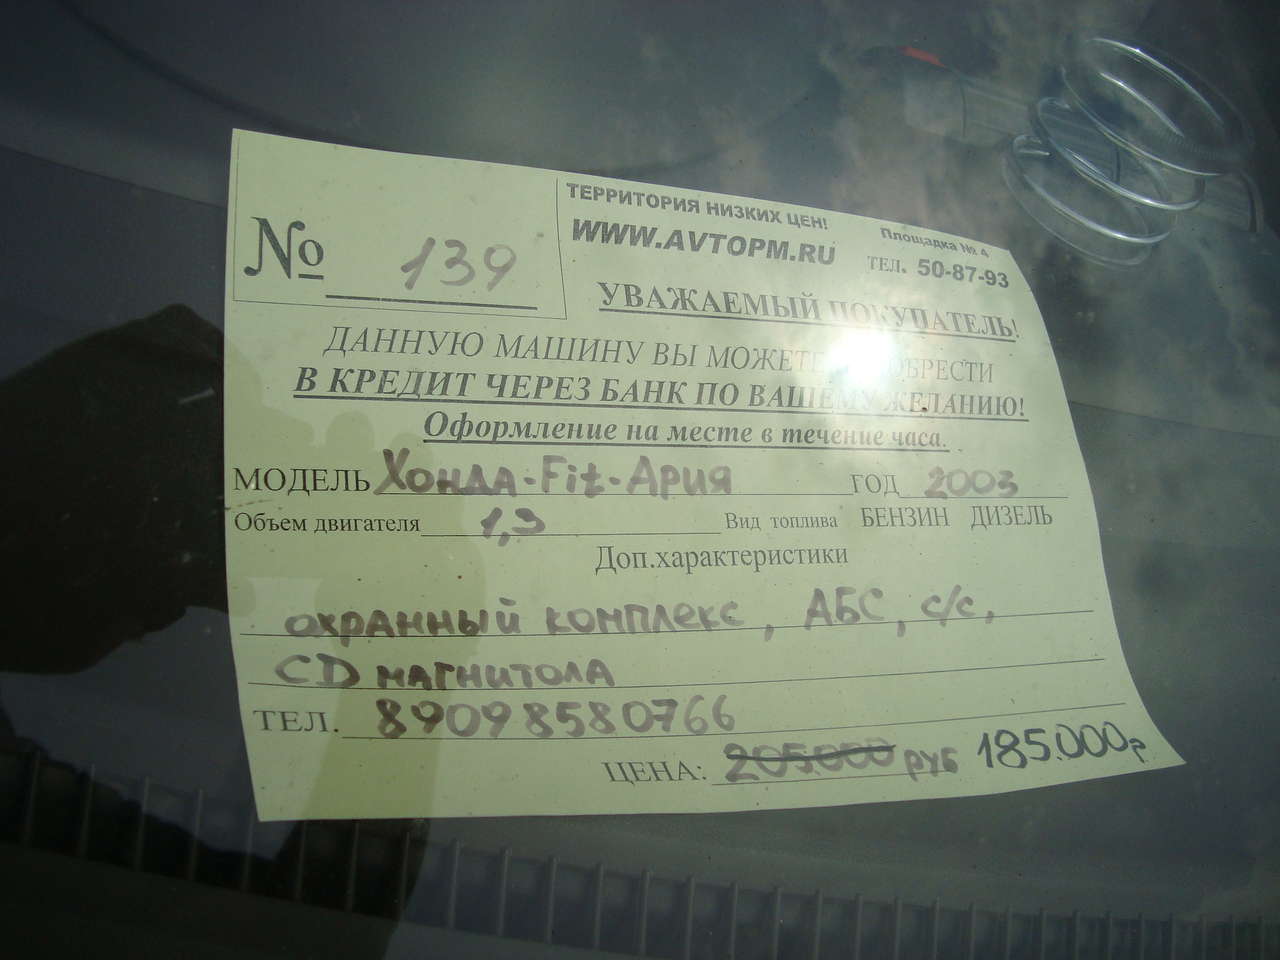 № 139
ТЕРРИТОРИЯ НИЗКИХ ЦЕН!
WWW.AVTOPM.RU
Площадка № 4
ТЕЛ. 50-87-93
УВАЖАЕМЫЙ ПОКУПАТЕЛЬ!
ДАННУЮ МАШИНУ ВЫ МОЖЕТЕ ПРИОБРЕСТИ
В КРЕДИТ ЧЕРЕЗ БАНК ПО ВАШЕМУ ЖЕЛАНИЮ!
Оформление на месте в течение часа.
МОДЕЛЬ Хонда-Fit-Ария ГОД 2003
Объем двигателя 1,3 Вид топлива БЕНЗИН ДИЗЕЛЬ
Доп.характеристики
охранный комплекс, АБС, с/с,
CD магнитола
ТЕЛ. 89098580766
ЦЕНА: 205.000 руб 185.000р